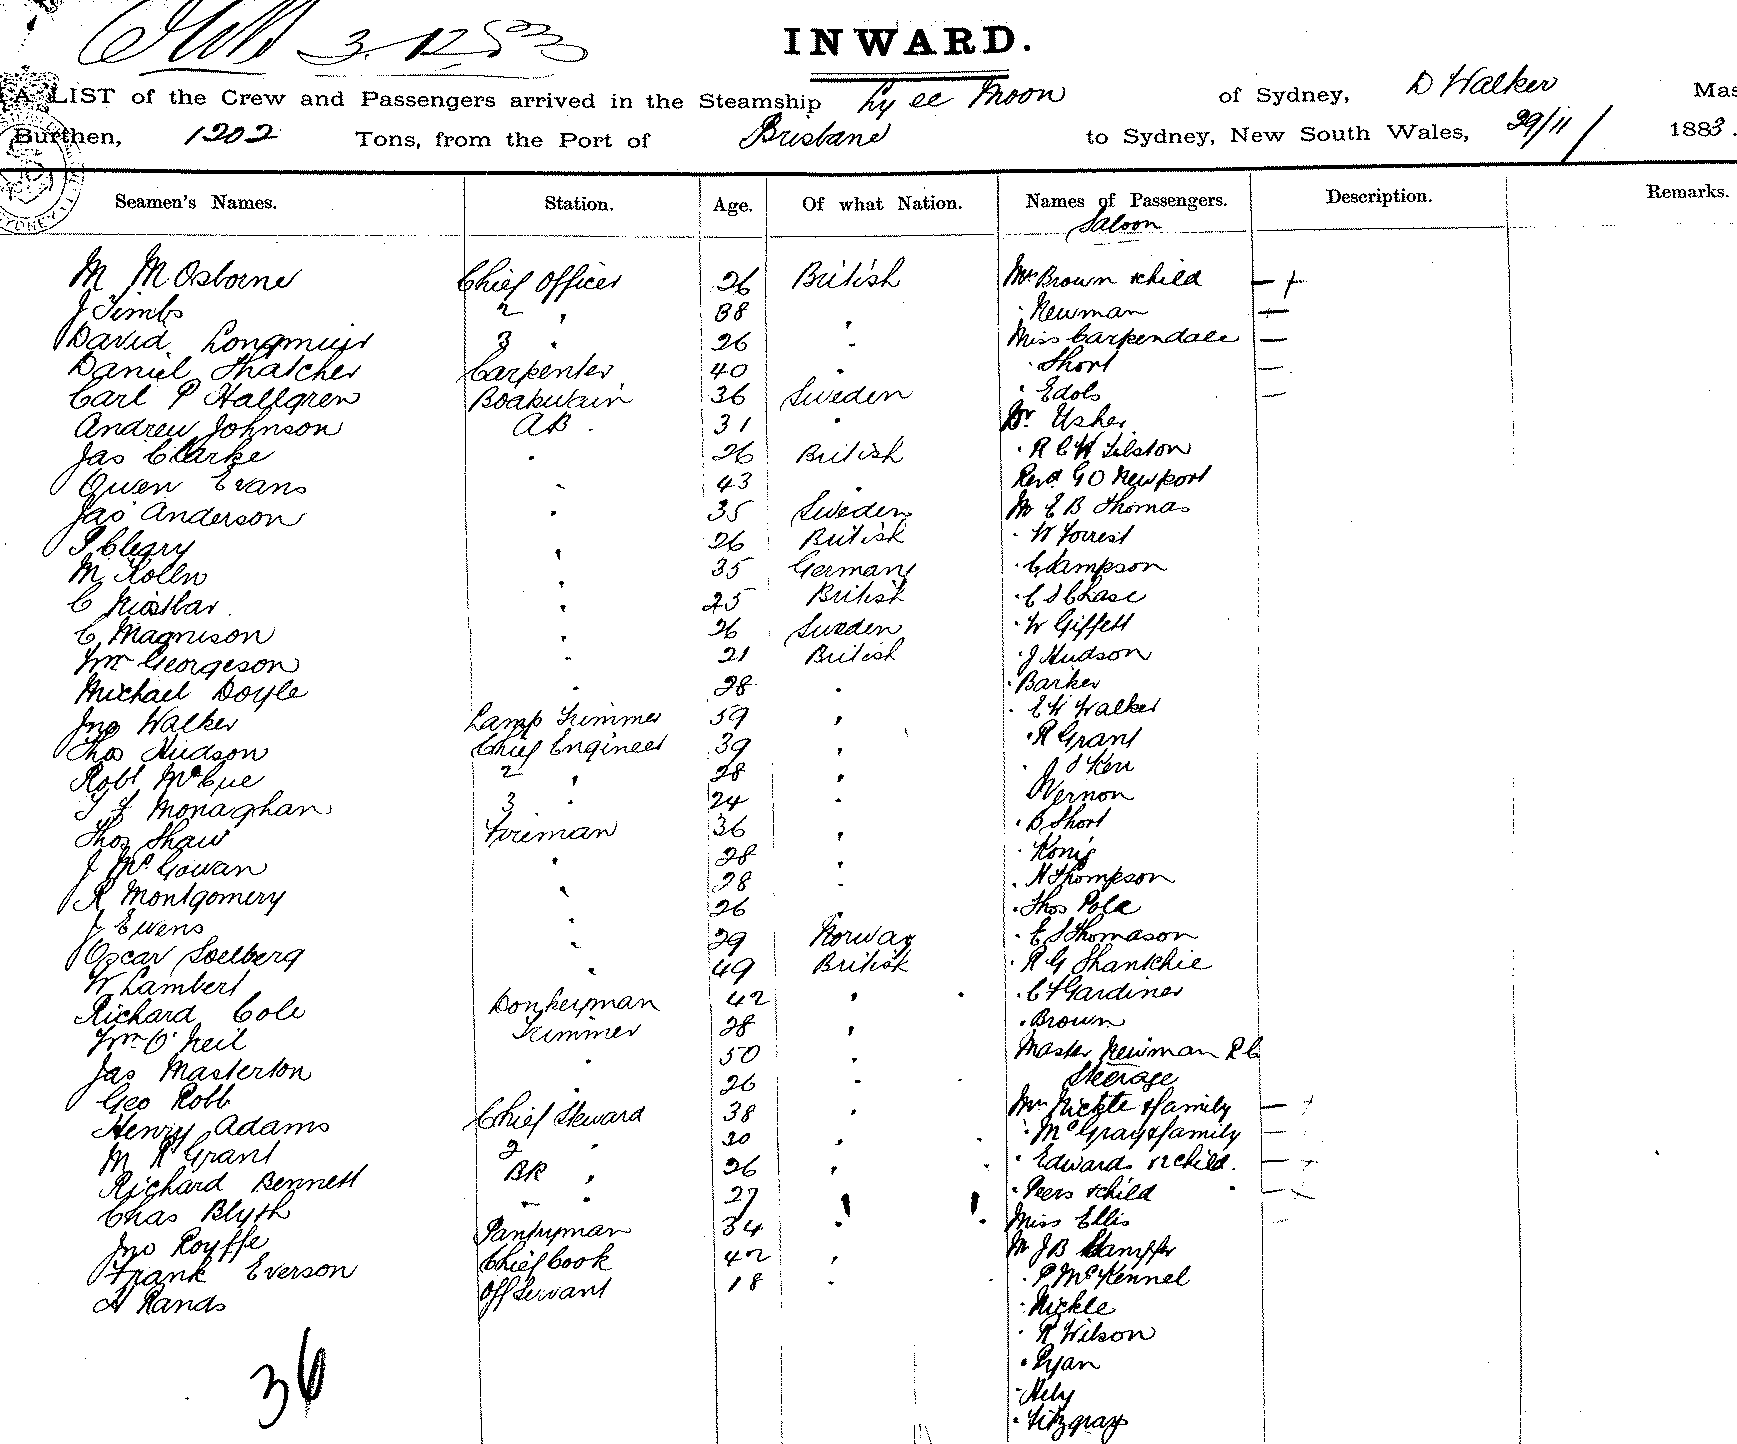 3.12.83
INWARD.
A LIST of the Crew and Passengers arrived in the Steamship Ly ee Moon of Sydney, D Walker Mas
Burthen, 1202 Tons, from the Port of Brisbane to Sydney, New South Wales, 29/11/ 1883.
Seamen's Names. Station. Age. Of what Nation. Names of Passengers. Description. Remarks.
Saloon
M M Osborne Chief Officer 26 British Mrs Brown & child — +
J Timbs 2 " 38 " " Newman —
David Longmuir 3 " 26 " Miss Carpendale —
Daniel Thatcher Carpenter 40 " " Short —
Carl P Hallgren Boatswain 36 Sweden " Edols —
Andrew Johnson AB. 31 " Dr. Usher
Jas Clarke " 26 British " R C W Tilston
Owen Evans " 43 " Revd. G O Newport
Jas Anderson " 35 Sweden Mr E B Thomas
P Cleary " 26 British " W Forrest
M Rolln " 35 Germany " C Sampson
C " 25 British " C S Chase
C Magnuson " 26 Sweden " W Giffett
Wm Georgeson " 21 British " J Hudson
Michael Doyle " 28 " " Barker
Jno Walker Lamp Trimmer 59 " " E W Walker
Thos Hudson Chief Engineer 39 " " R Grant
Robt McCue 2 " 28 " " J S Kerr
T F Monaghan 3 " 24 " Vernon
Thos Shaw Fireman 36 " " B Short
J McGowan " 28 " " Konig
R Montgomery " 28 " " H Thompson
J Ewens " 26 " " Thos Pole
Oscar Soelberg " 29 Norway " E S Thomason
W Lambert " 49 British " R G Shankhie
Richard Cole Donkeyman 42 " " C F Gardiner
Wm O'Neil Trimmer 28 " " Brown
Jas Masterton " 50 " Master Newman
Geo Robb " 26 " Steerage
Henry Adams Chief Steward 38 " Mrs Nickle & family — +
M R Grant 2 " 30 " " McGray & family —
Richard Bennett BR " 26 " " Edwards & child. — +
Chas Blyth " " 27 " " Peers & child —
Jno Royffe Pantryman 34 " Miss Ellis
Frank Everson Chief Cook 42 " Mr J B
A Rands Off Servant 18 " " P McKennel
" Nickle
" R Wilson
" Ryan
" Hely
" Fitzgray
36